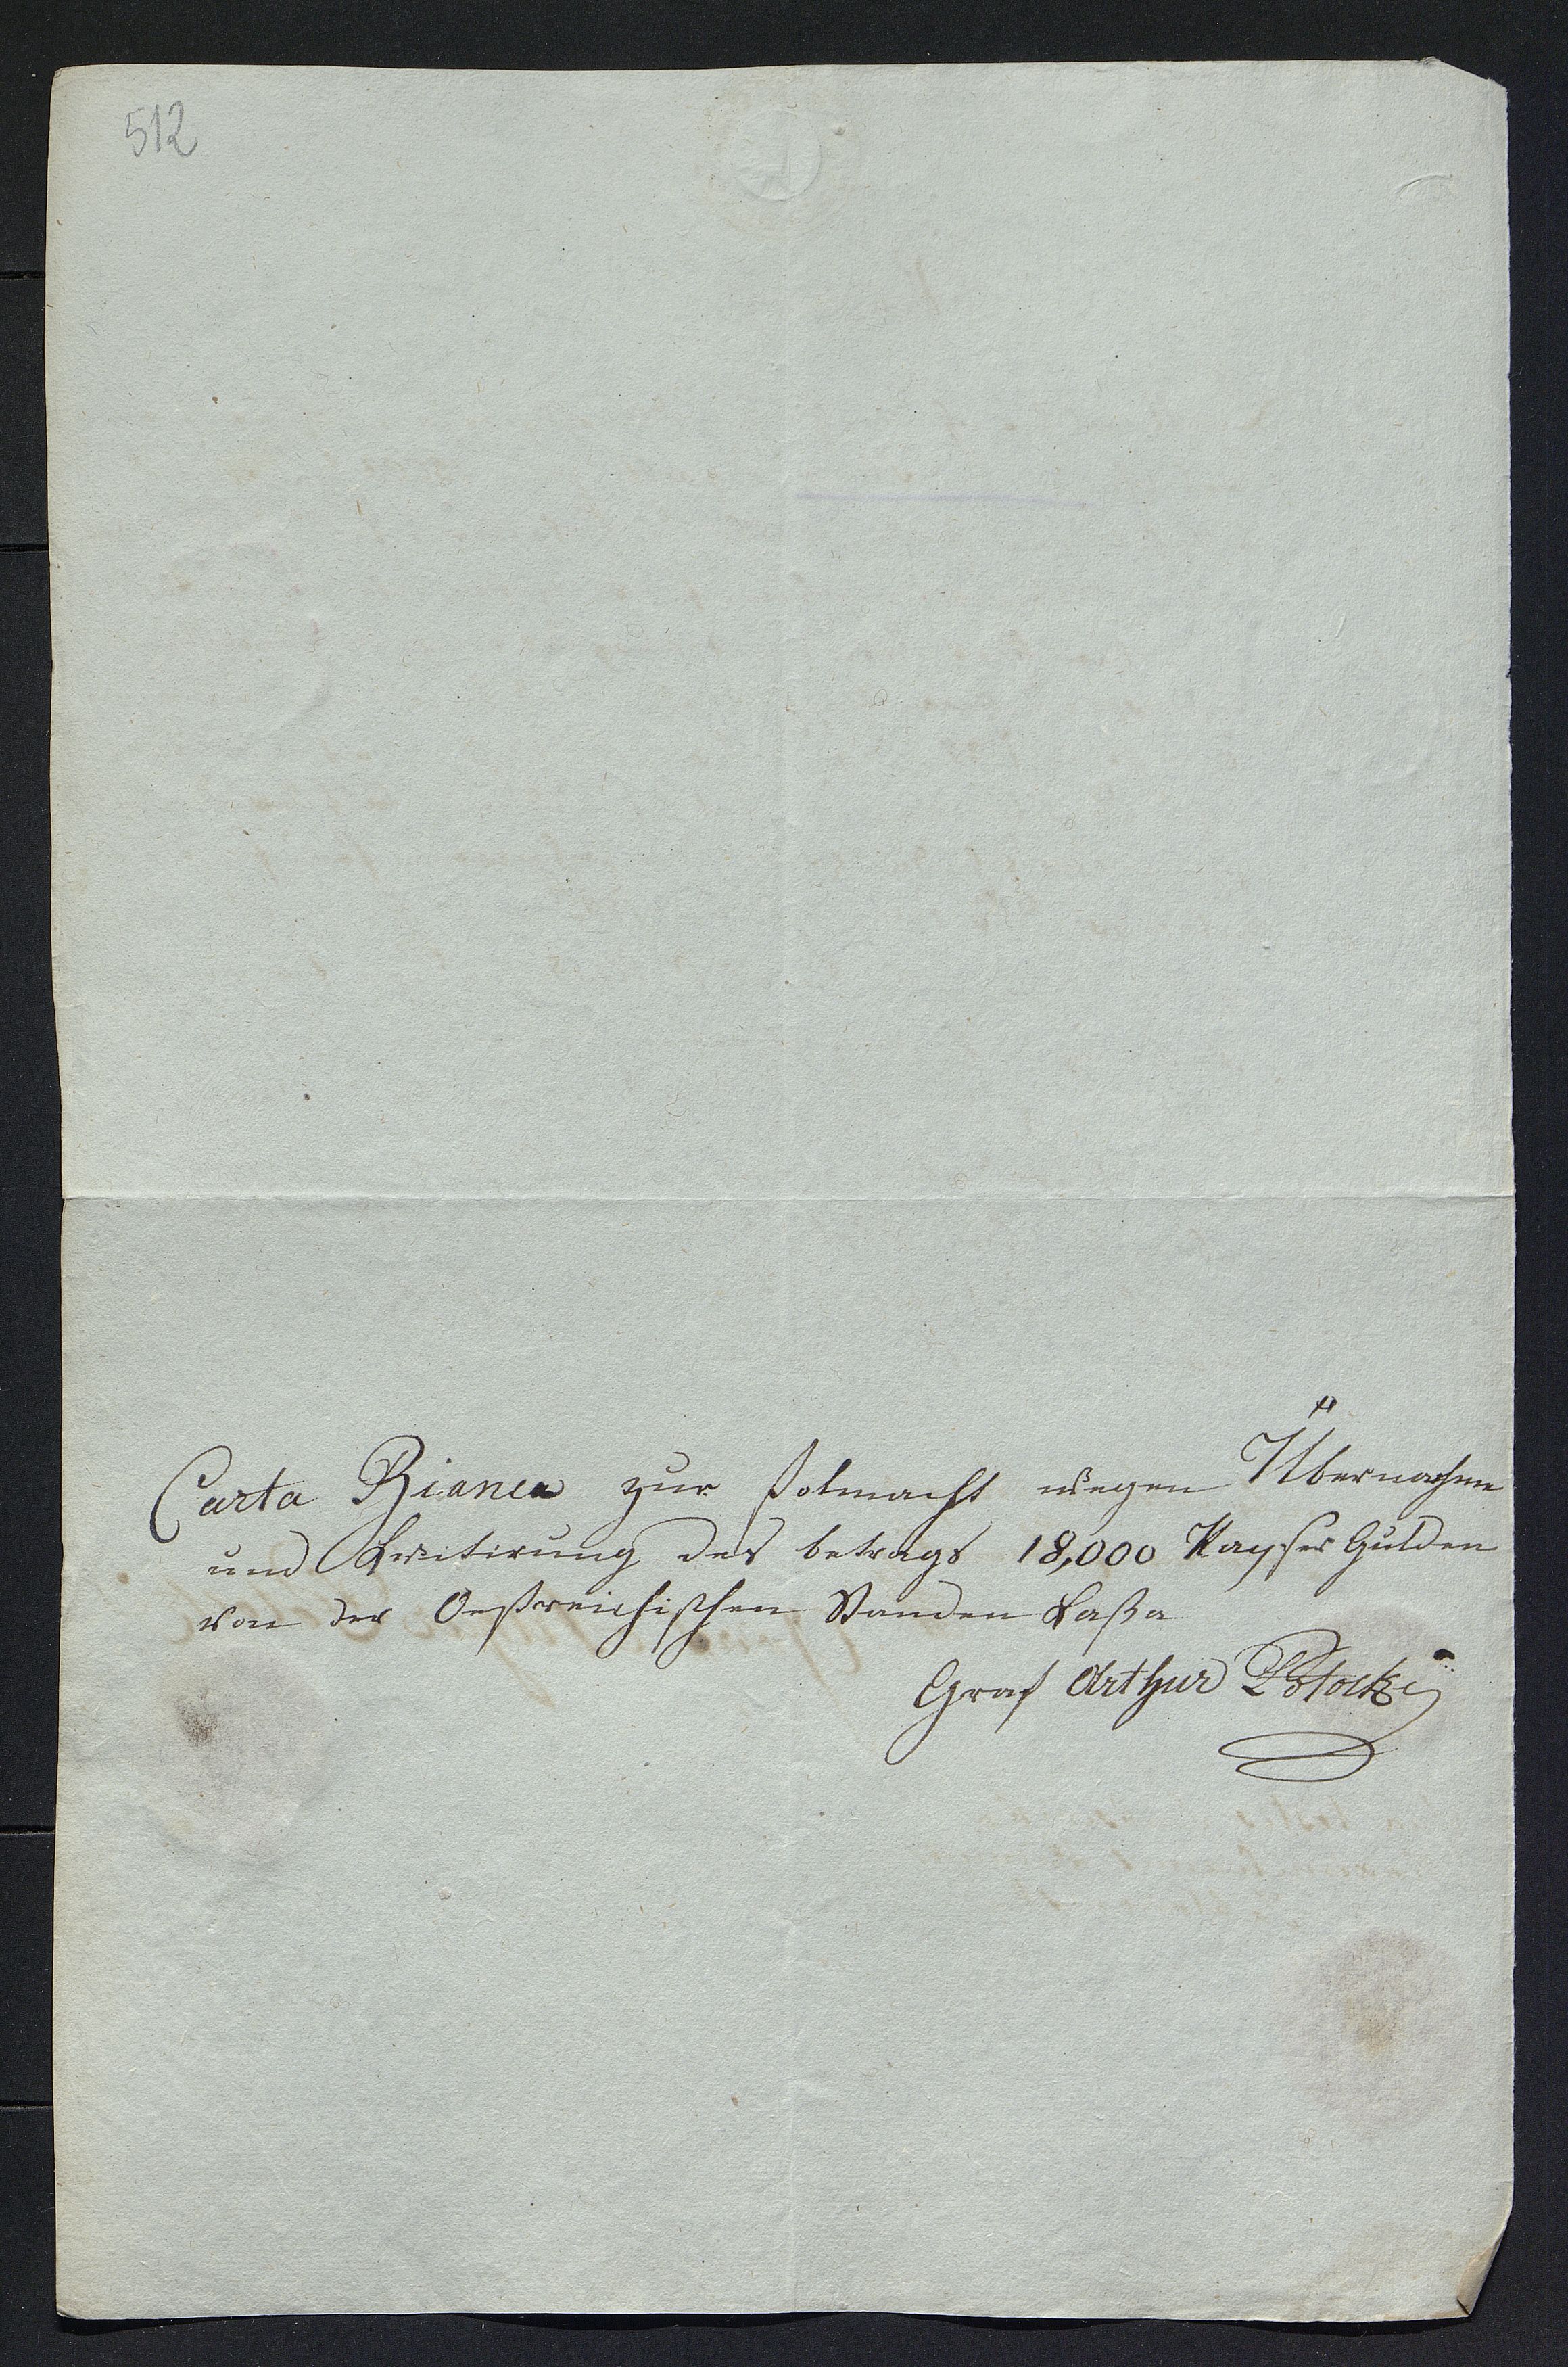 512
Carta Bianca zur Folmacht wegen Übernahme
und Kwitirung des betrags 18,000 Kayser Gulden
von der Oestreichischen Standen Kassa
Graf Arthur Potocki